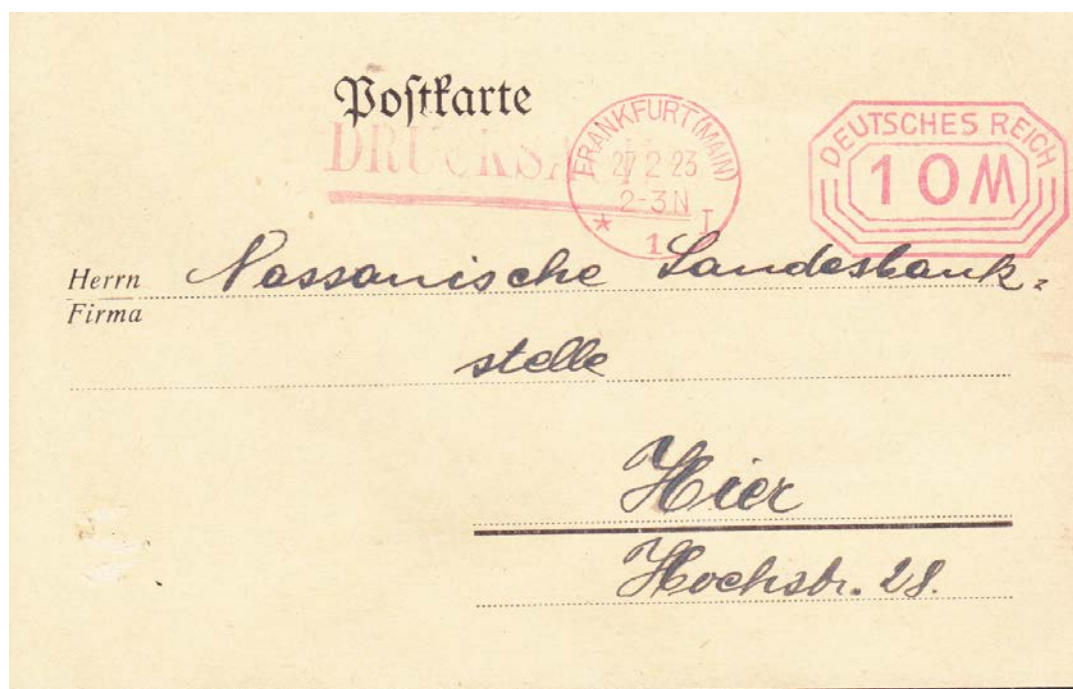 Postkarte
DRUCKSA
FRANKFURT (MAIN)
27 2 23
2-3 N
* 1 I
DEUTSCHES REICH
10M
Herrn Nassauische Landesbank-
Firma
stelle
Hier
Hochstr. 28.